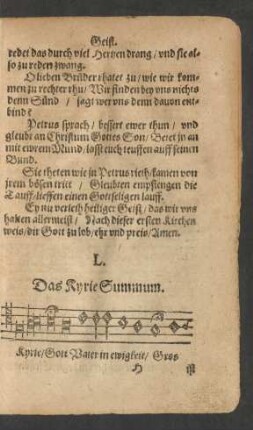 Geist.
redet das durch viel Hertzen drang / vnd sie al-
so zu reden zwang.
O lieben Brüder rhatet zu / wie wir kom-
men zu rechter rhu / Wir finden bey vns nichts
denn Sünd / sagt wer vns denn dauon ent-
bind?
Petrus sprach / bessert ewer thun / vnd
gleubt an Christum Gottes Son / Betet jn an
mit ewrem Mund / lasst euch teuffen auff seinen
Bund.
Sie theten wie jn Petrus rieth / kamen von
jrem bösen tritt / Gleubten empfiengen die
Tauff / lieffen einen Gottseligen lauff.
Ey nu verleih heiliger Geist / das wir vns
halten allermeist / Nach dieser ersten Kirchen
weis / dir Gott zu lob / ehr vnd preis / Amen.
L.
Das Kyrie Summum.
Kyrie / Gott Vater in ewigkeit / Gros
H ist